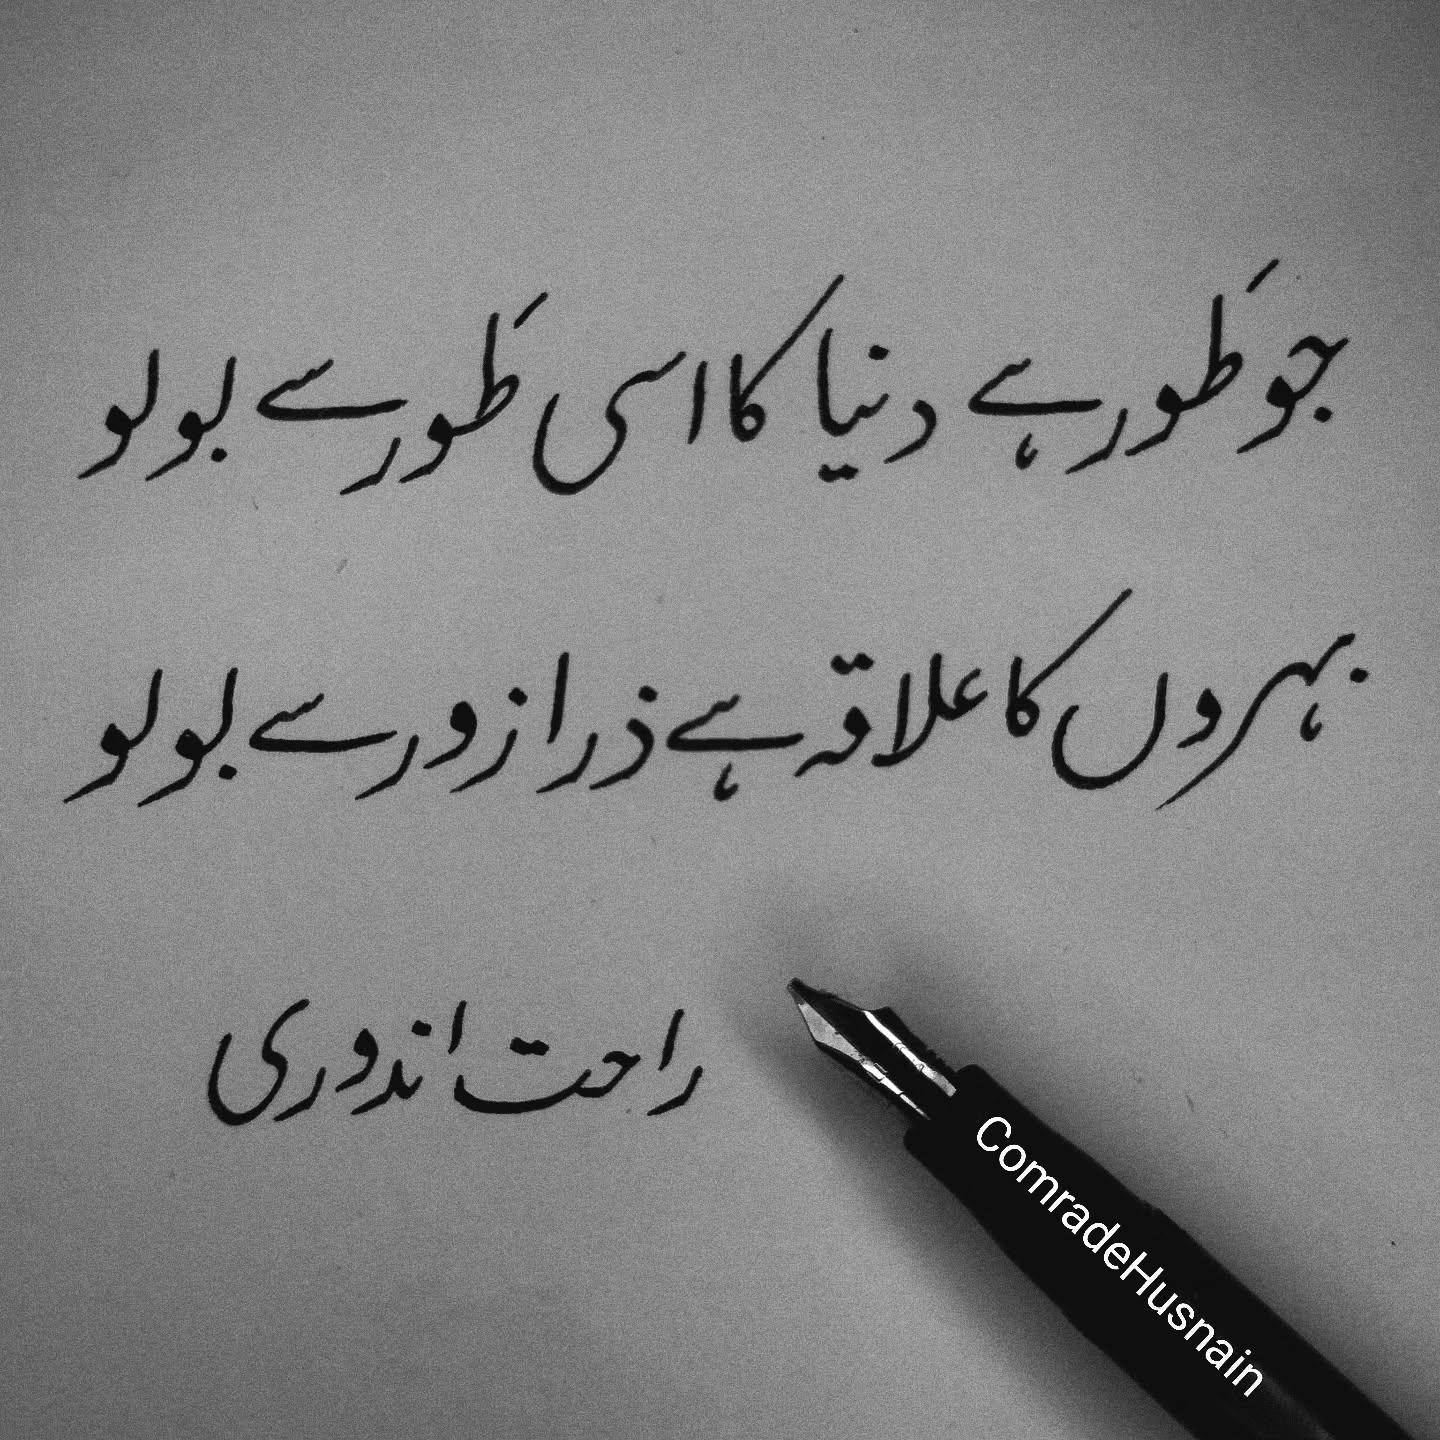 جو طَور ہے دنیا کا اسی طَور سے بولو
بہروں کا علاقہ ہے ذرا زور سے بولو
راحت اندوری
ComradeHusnain